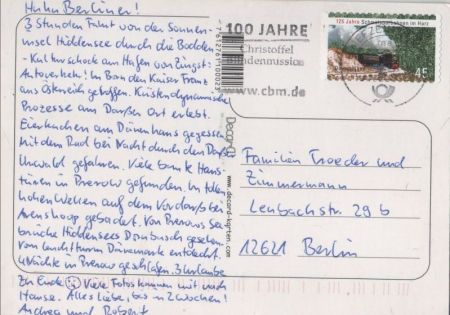 Huhu Berliner!
3 Stunden Fahrt von der Sonnen-
insel Hiddensee durch die Bodden
- Kulturschock am Hafen von Zingst:
Autoverkehr! In Born den Kaiser Franz
aus Österreich getroffen. Küstendynamische
Prozesse am Darßer Ort erlebt.
Eierkuchen am Dünenhaus gegessen.
Mit dem Rad bei Nacht durch den Darß-
Urwald gefahren. Viele bunte Haus-
türen in Prerow gefunden. In
hohen Wellen auf dem Vordarß bei
Ahrenshoop gebadet. Von Prerows See-
brücke Hiddensees Dornbusch gesehen.
Vom Leuchtturm Dänemark entdeckt.
4 Nächte in Prerow geschlafen. Urlaub
zu Ende Viele Fotos kommen mit nach
Hause. Alles Liebe, bis in 2 Wochen!
Andrea und Robert
100 JAHRE
Christoffel
Blindenmission
www.cbm.de
125 Jahre Schmalspurbahnen im Harz
45
www.decord-karten.com
Familien Troeder und
Zimmermann
Lenbachstr. 29 b
12621 Berlin